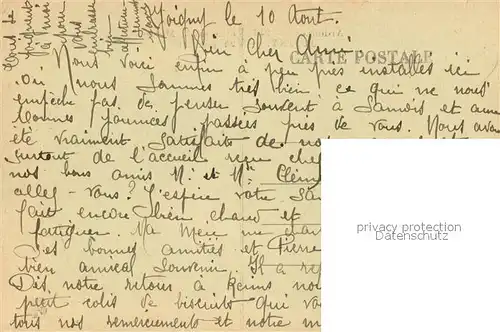 Joigny le 10 Août.
Bien cher Ami
CARTE POSTALE
Nous voici enfin à peu près installés ici
où nous sommes très bien ce qui ne nous
empêche pas de penser souvent à Samois et aux
bonnes journées passées près de vous. Nous avons
été vraiment satisfaits de no
surtout de l'accueil reçu chez
nos bons amis Mr et Me Clém
allez-vous? J'espère votre san
fait encore bien chaud et
fatiguer. Ma Mère me char
ses bonnes amitiés et Pierre
bien amical souvenir. Il a re
Dès notre retour à Reims no
petit colis de biscuits qui vo
tous nos remerciements et notre m
privacy protection
Datenschutz